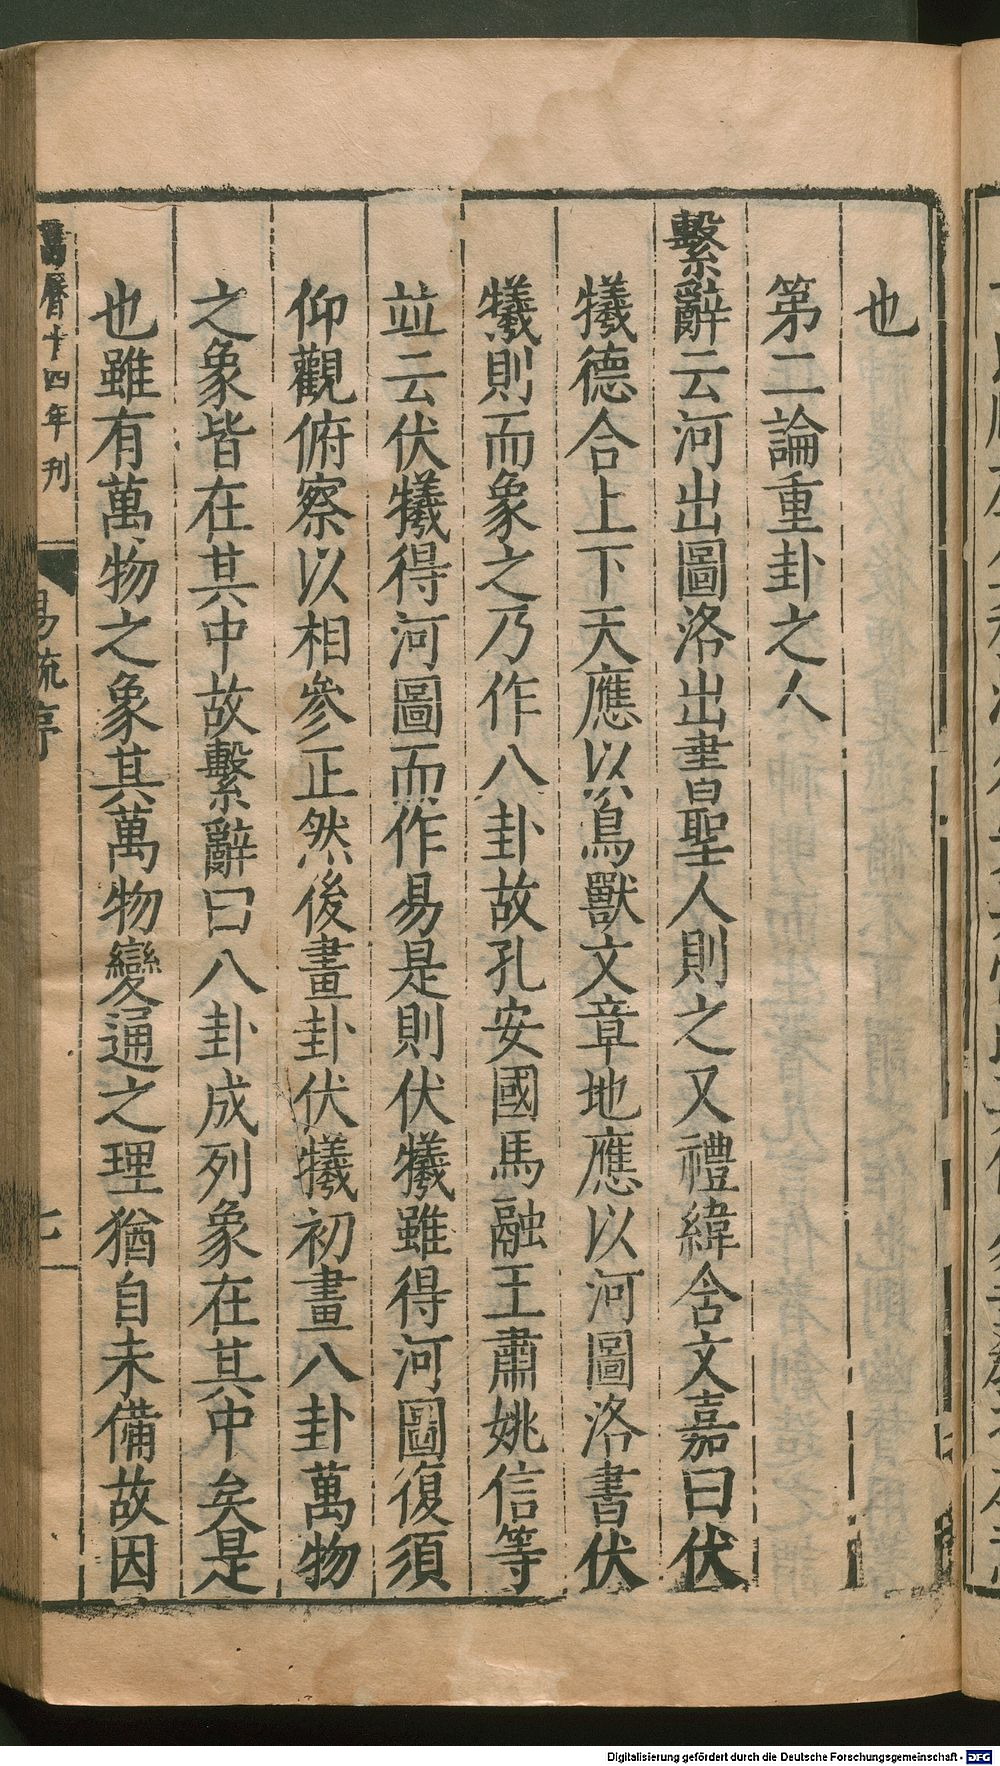 也
第二論重卦之人
繫辭云河出圖洛出書聖人則之又禮緯含文嘉曰伏
犧德合上下天應以鳥獸文章地應以河圖洛書伏
犧則而象之乃作八卦故孔安國馬融王肅姚信等
並云伏犧得河圖而作易是則伏犧雖得河圖復須
仰觀俯察以相參正然後畫卦伏犧初畫八卦萬物
之象皆在其中故繫辭曰八卦成列象在其中矣是
也雖有萬物之象其萬物變通之理猶自未備故因
萬曆十四年刊
易疏序
七
Digitalisierung gefördert durch die Deutsche Forschungsgemeinschaft - DFG